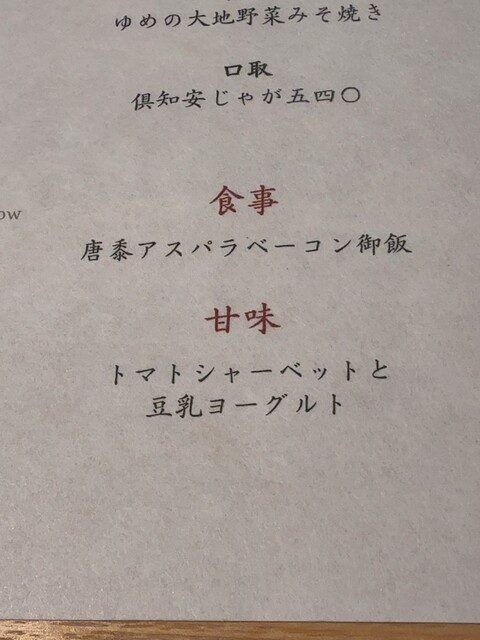 ゆめの大地野菜みそ焼き
口取
倶知安じゃが五四〇
ow
食事
唐黍アスパラベーコン御飯
甘味
トマトシャーベットと
豆乳ヨーグルト